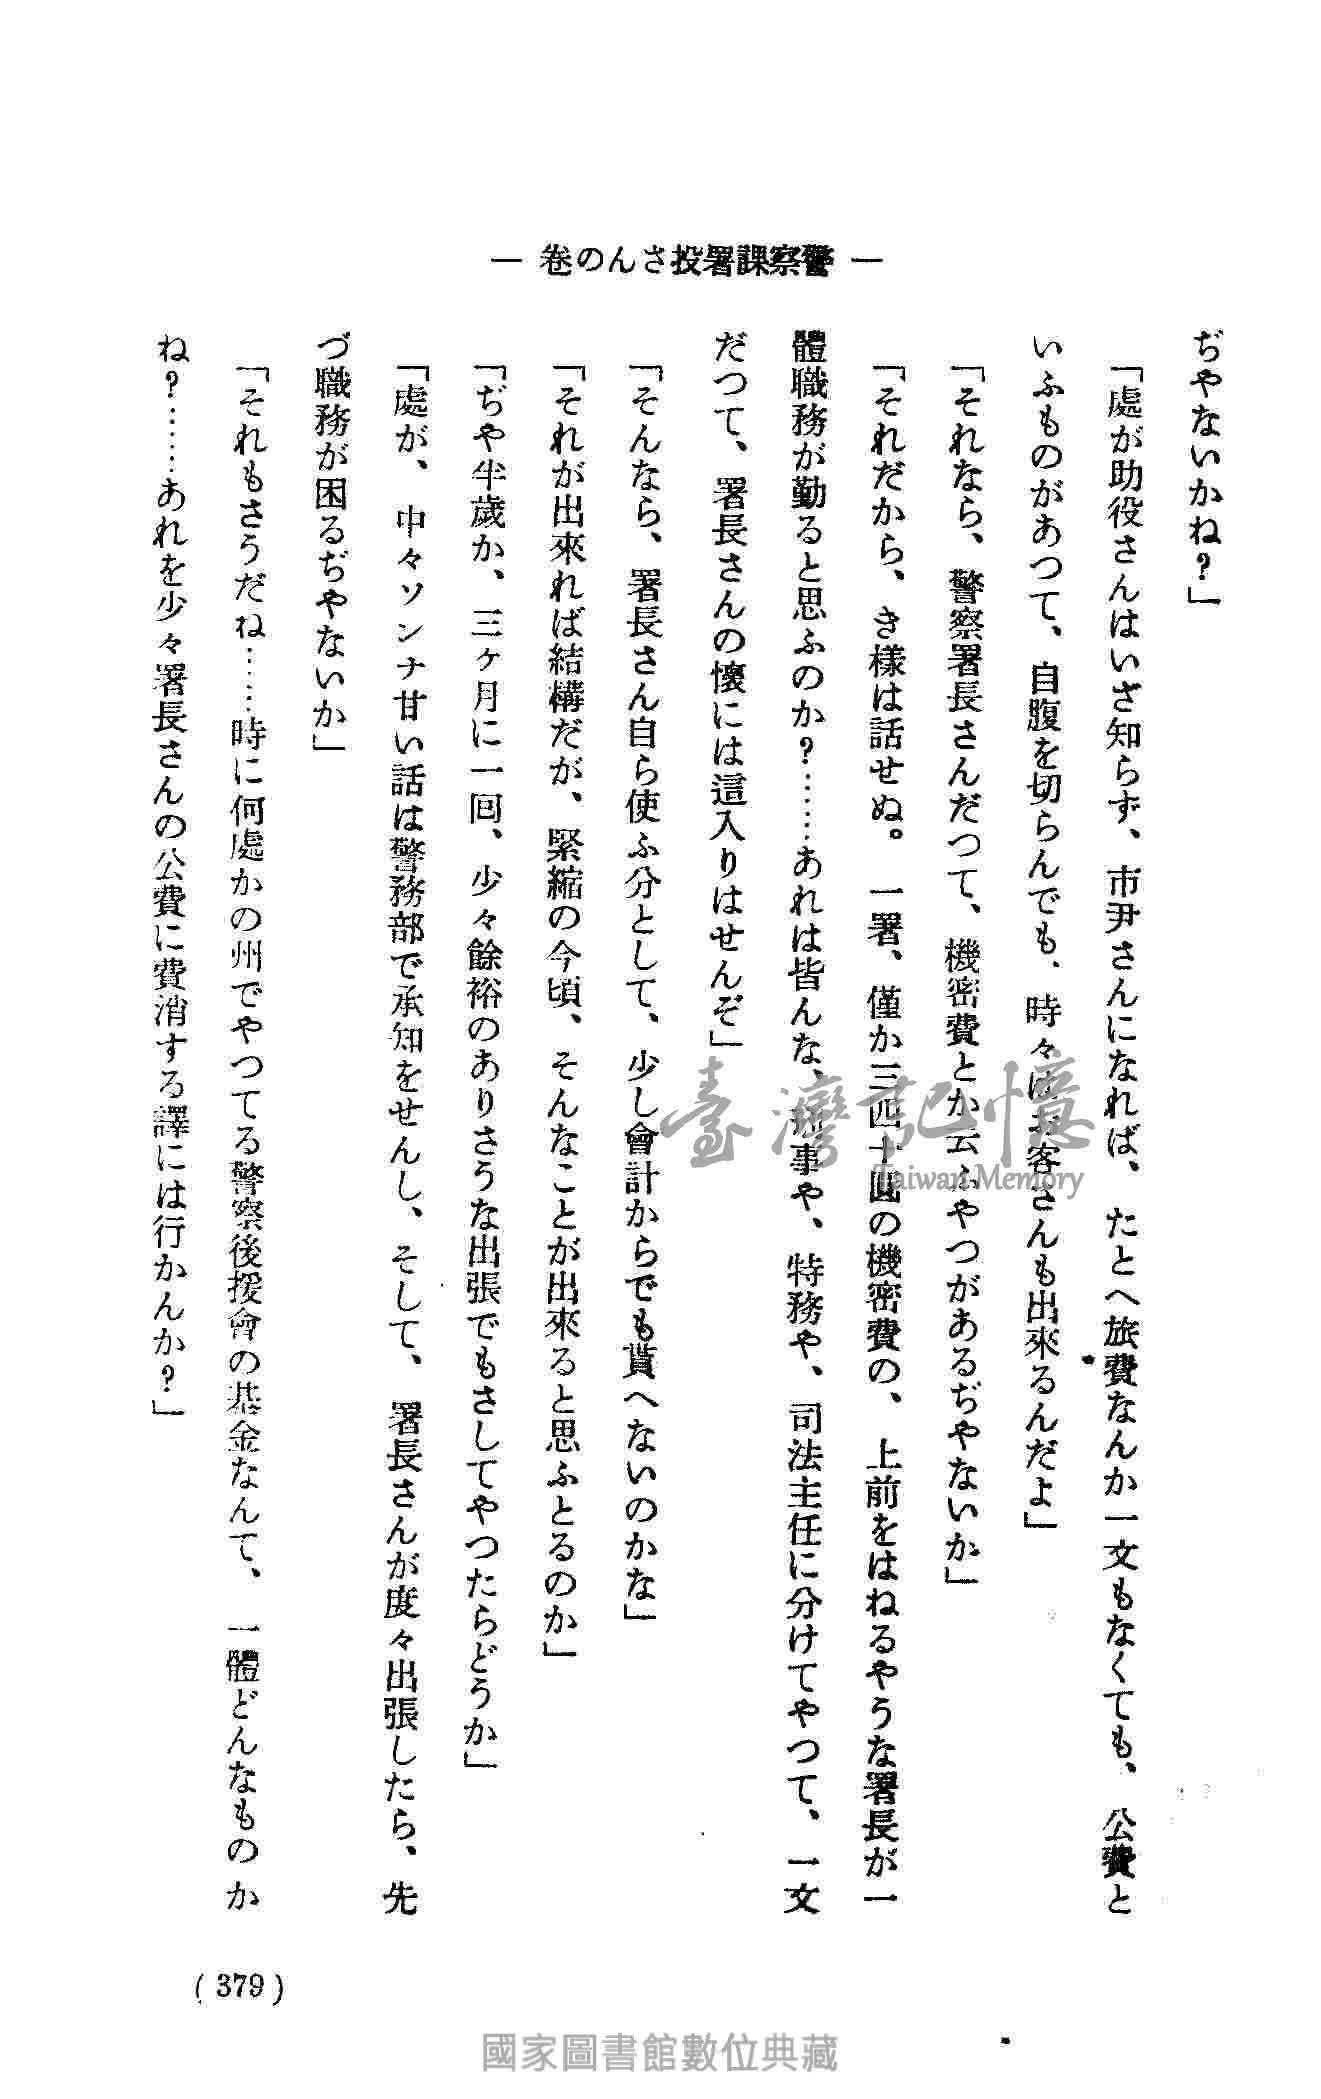 — 卷のんさ投署課察警 —
ぢやないかね?」
「處が助役さんはいざ知らず、市尹さんになれば、たとへ旅費なんか一文もなくても、公費と
いふものがあつて、自腹を切らんでも、時々はお客さんも出來るんだよ」
「それなら、警察署長さんだつて、機密費とか云ふやつがあるぢやないか」
「それだから、き樣は話せぬ。一署、僅か三四十圓の機密費の、上前をはねるやうな署長が一
體職務が勤ると思ふのか?……あれは皆んな、刑事や、特務や、司法主任に分けてやつて、一文
だつて、署長さんの懷には這入りはせんぞ」
「そんなら、署長さん自ら使ふ分として、少し會計からでも貰へないのかな」
「それが出來れば結構だが、緊縮の今頃、そんなことが出來ると思ふとるのか」
「ぢや半歲か、三ヶ月に一回、少々餘裕のありさうな出張でもさしてやつたらどうか」
「處が、中々ソンナ甘い話は警務部で承知をせんし、そして、署長さんが度々出張したら、先
づ職務が困るぢやないか」
「それもさうだね……時に何處かの州でやつてる警察後援會の基金なんて、一體どんなものか
ね?……あれを少々署長さんの公費に費消する譯には行かんか?」
(379)
臺灣記憶
Taiwan Memory
國家圖書館數位典藏